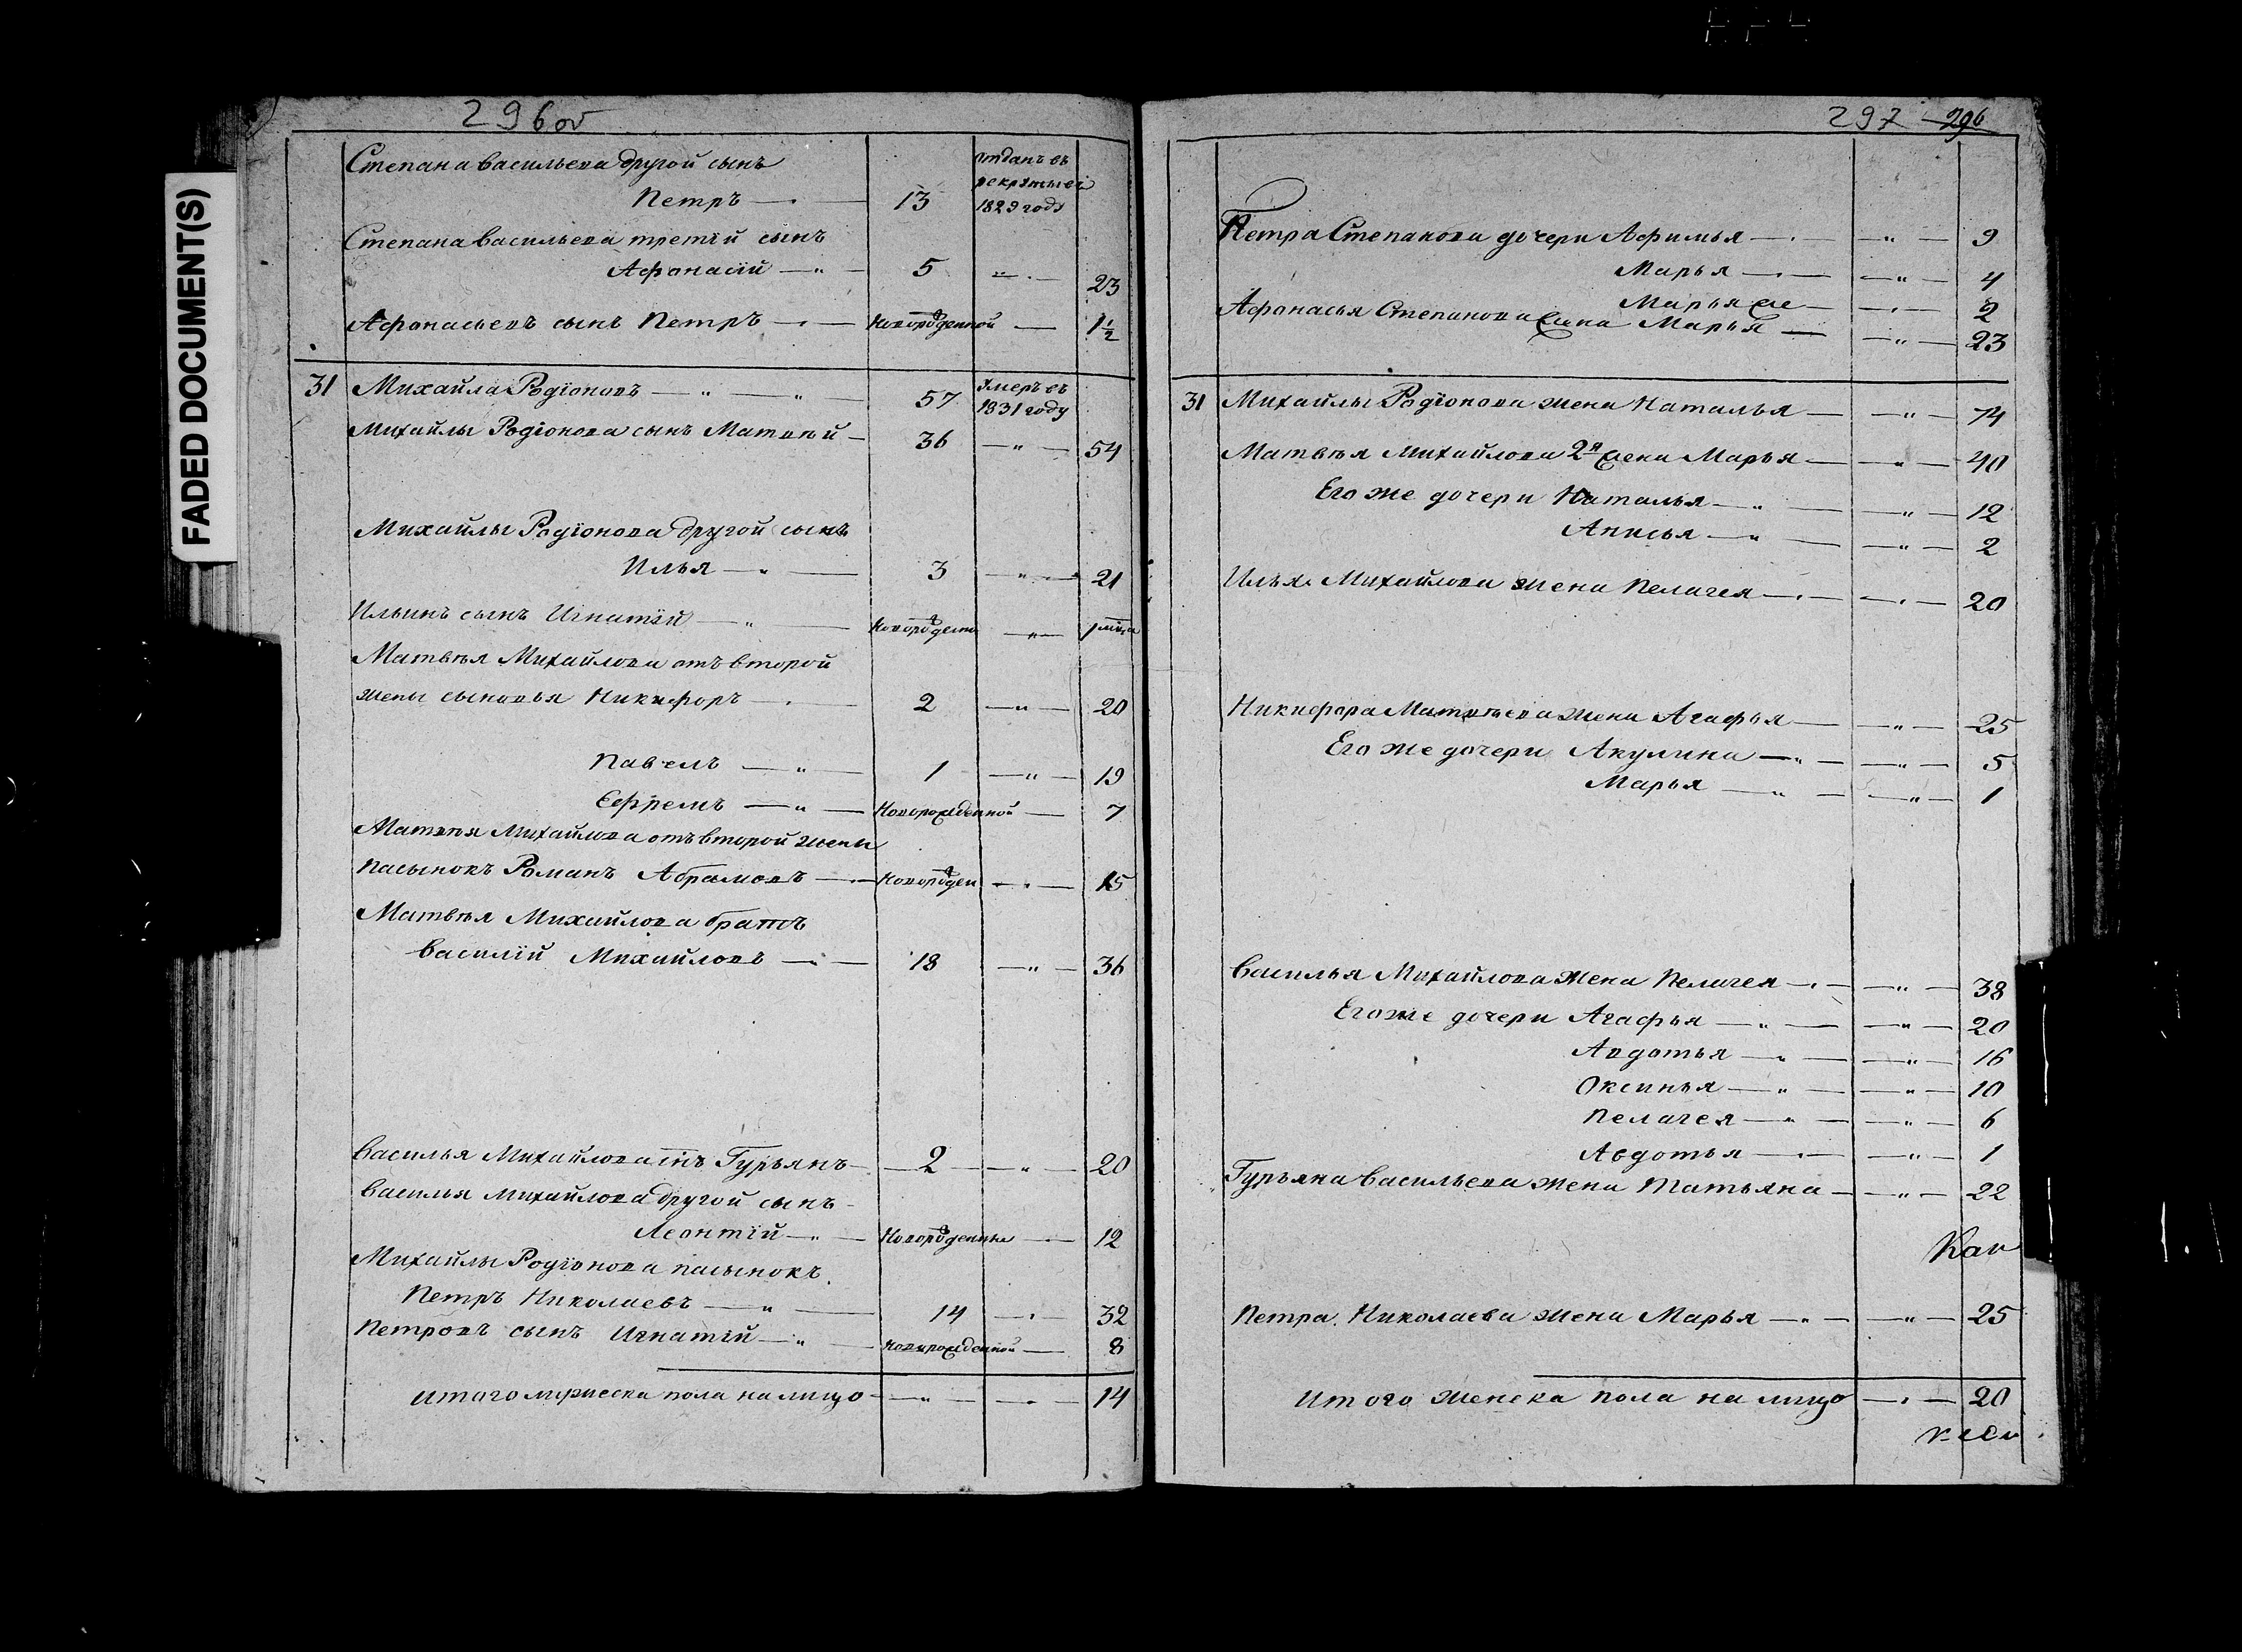 FADED DOCUMENT(S)
296 об
Степана Васильева другой сынъ
отданъ въ
рекруты въ
Петръ — 13 1829 году
Степана Васильева третїй сынъ
Афонасїй — " — 5 — " — 23
Афонасьевъ сынъ Петръ — новорожденной — 1 1/2
31 Михайла Родїоновъ — " — " — 57 умеръ въ
1831 году
Михайлы Родїонова сынъ Матвѣй — 36 — " — 54
Михайлы Родїонова другой сынъ
Илья — " — 3 — " — 21
Ильинъ сынъ Игнатїй — " — новорожденной — " — 1
Матвѣя Михайлова отъ второй
жены сыновья Никифоръ — " — 2 — " — 20
Павелъ — " — 1 — " — 19
Ефремъ — " — новорожденной — 7
Матвѣя Михайлова отъ второй жены
пасынокъ Романъ Абрамовъ — новорожден — " — 15
Матвѣя Михайлова братъ
Василїй Михайловъ — " — 18 — " — 36
Василья Михайлова сынъ Гурьянъ — 2 — " — 20
Василья Михайлова другой сынъ
Леонтїй — " — новорожденны — " — 12
Михайлы Родїонова пасынокъ
Петръ Николаевъ — " — 14 — " — 32
Петровъ сынъ Игнатїй — " — новорожденной — 8
итого мужеска пола на лицо — " — " — 14
297 296
Петра Степанова дочери Афимья — " — 9
Марья — " — 4
Марья же — " — 2
Афонасья Степанова жена Марья — " — 23
31 Михайлы Родїонова жена Наталья — " — 74
Матвѣя Михайлова 2я жена Марья — " — 40
Его же дочери Наталья — " — 12
Анисья — " — 2
Ильи Михайлова жена Пелагея — " — 20
Никифора Матвѣева жена Агафья — " — 25
Его же дочери Акулина — " — 5
Марья — " — 1
Василья Михайлова жена Пелагея — " — 38
Его же дочери Агафья — " — 20
Авдотья — " — 16
Оксинья — " — 10
Пелагея — " — 6
Авдотья — " — 1
Гурьяна Васильева жена Татьяна — " — 22
Петра Николаева жена Марья — " — 25
Итого женска пола на лицо — " — 20